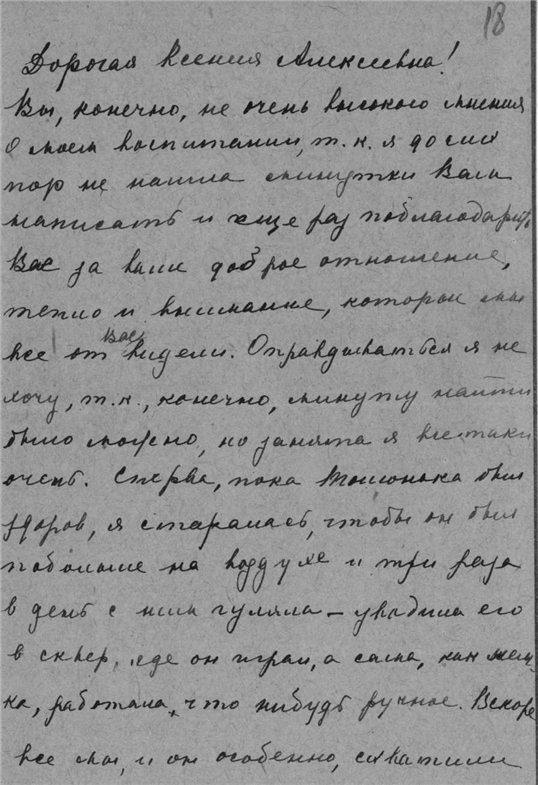 18
Дорогая Ксения Алексеевна!
Вы, конечно, не очень высокого мнения
о моем воспитании, т.к. я до сих
пор не нашла минутки Вам
написать и еще раз поблагодарить
Вас за ваше доброе отношение,
тепло и внимание, которое мы
все от Вас видели. Оправдываться я не
хочу, т.к., конечно, минуту найти
было можно, но занята я все-таки
очень. Сперва, пока был
здоров, я старалась, чтобы он был
побольше на воздухе и три раза
в день с ним гуляла – уводила его
в сквер, где он играл, а сама, как
работала, что нибудь ручное. Вскоре
все мы, и он особенно, схватили